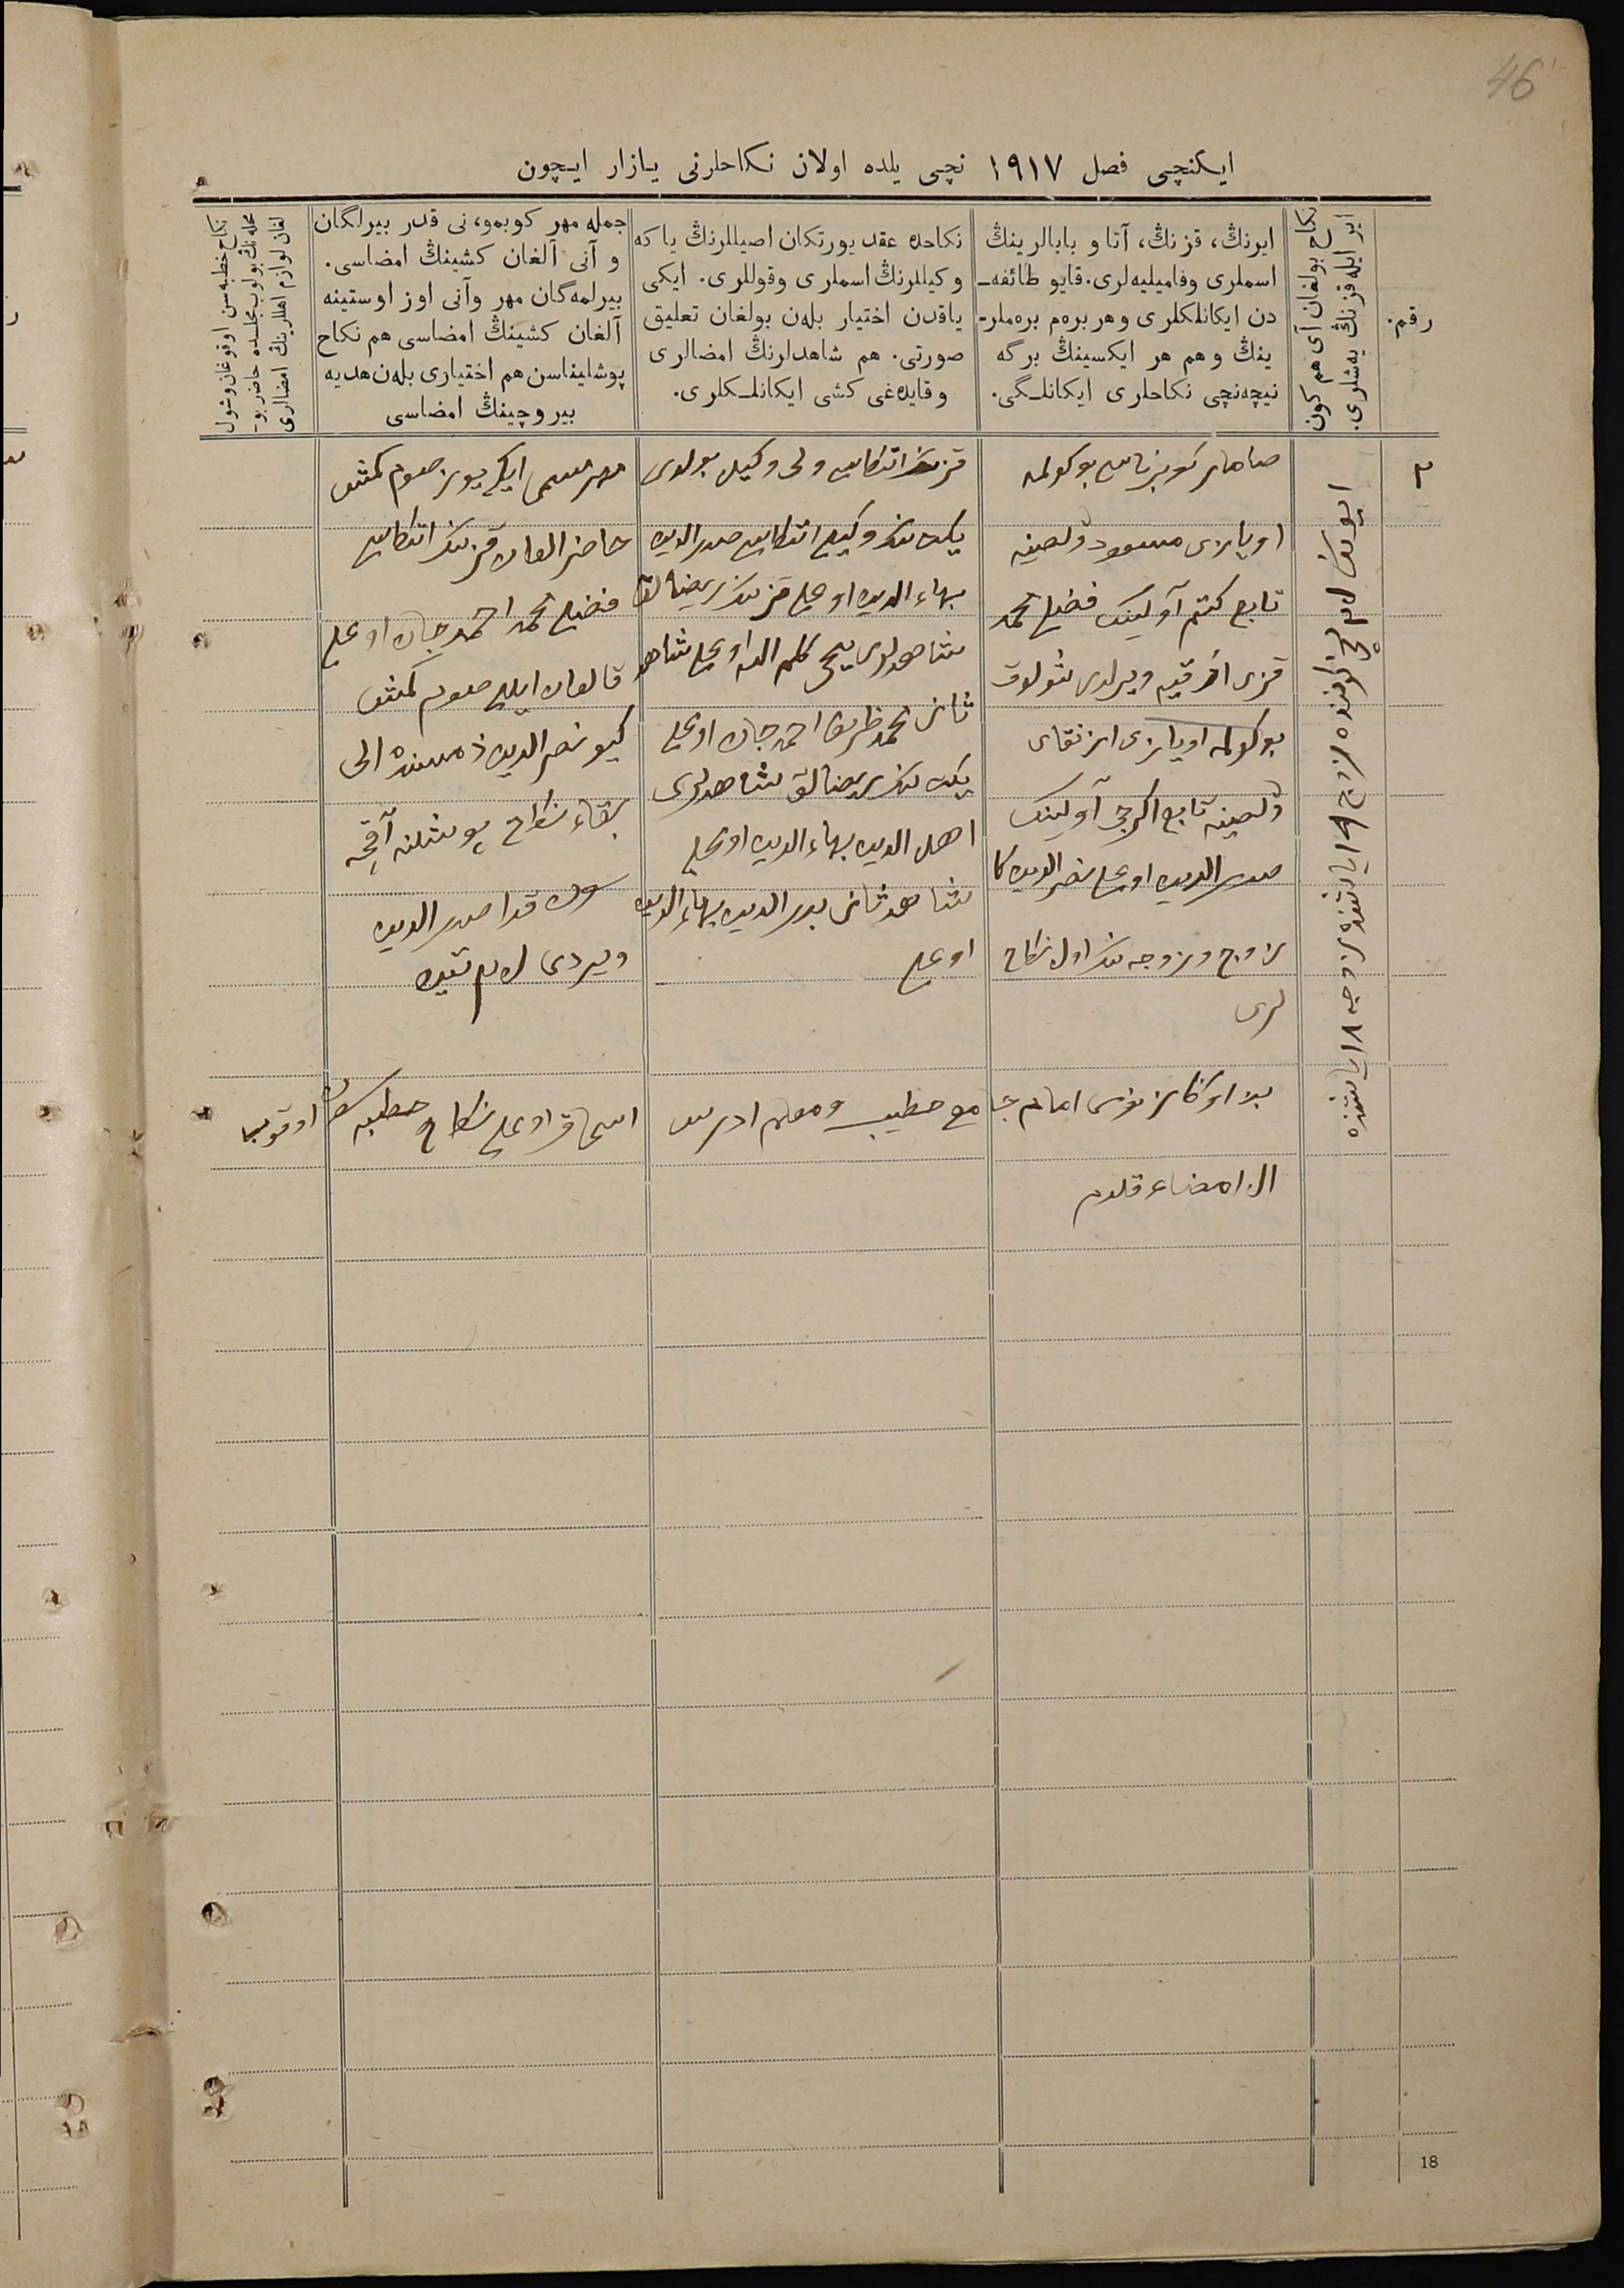 46
ایکنچی فصل ۱۹۱۷ نچی یلده اولان نکاحلرنی یازار ایچون
رقم.
نکاح بولغان آی هم کون
ایر ایله قزنڭ یەشلری.
ایرنڭ، قزنڭ، آتا و بابالرینڭ
اسملری وفامیلیەلری. قایو طائفه‌ـ
دن ایکانلکلری وهر برەم برەملر-
ینڭ و هم هر ایکسینڭ برگه
نیچەنچی نکاحلری ایکانلـگی.
نکاحده عقد یورتکان اصیللرنڭ یا که
وکیللرنڭ اسملری وقوللری. ایکی
یاقدن اختیار بلەن بولغان تعلیق
صورتی. هم شاهدلرنڭ امضالری
وقایدەغی کشی ایکانلـکلری.
جمله مهر کوبمو، نی قدر بیرلگان
و آنی آلغان کشینڭ امضاسی.
بیرلمەگان مهر وآنی اوز اوستینه
آلغان کشینڭ امضاسی هم نکاح
پوشلیناسن هم اختیاری بلەن هدیه
بیروچینڭ امضاسی
نکاح خطبەسن اوقوغان وشول
محلەنڭ بولوب مجلسده حاضر بو-
لغان لوازم اهللرینڭ امضالری
۳
زوج ۱۹ یاشنده زوجه ۱۸ یاشنده
صامار کوبرناسی بوکولمه
اویازی مسعود ولصینه
تابع کتم آولینک فضیل محمد
قزی افرقیه ویرلدی شولوق
بوکولمه اویازی ایزنقای
ولصینه تابع اکرجی آولینک
صدرالدین اوغلی نصرالدین کا
زوج وزوجه ننک اول نکاح
لری
قزننک اتاکاسی ولی وکیل بولدی
یکت ننک وکیلی اتاکاسی صدرالدین
بهاءالدین اوغلی قزننک ریضالق
شاهدلری یحیی کلیم الله اوغلی شاهد
ثانی محمد ظریف احمدجان اوغلی
یکت ننک ریضالق شاهدلری
اهل الدین بهاءالدین اوغلی
شاهد ثانی بدرالدین بهاءالدین
اوغلی
مهر مسمی ایکی یوز صوم کمش
حاضر الغان قزننک اتاکاسی
فضیل محمد احمدجان اوغلی
قالغان ایللی صوم کمش
کیو نصرالدین ذمسنده الی
بقاء نکاح پوشلنه آقچه
سون قدا صدرالدین
ویردی ۵ م تین
امام جامع خطیب ومعلم ادریس اسحاق اوغلی نکاح خطبه سن اوقوب
الـ امضاء قلدم
18